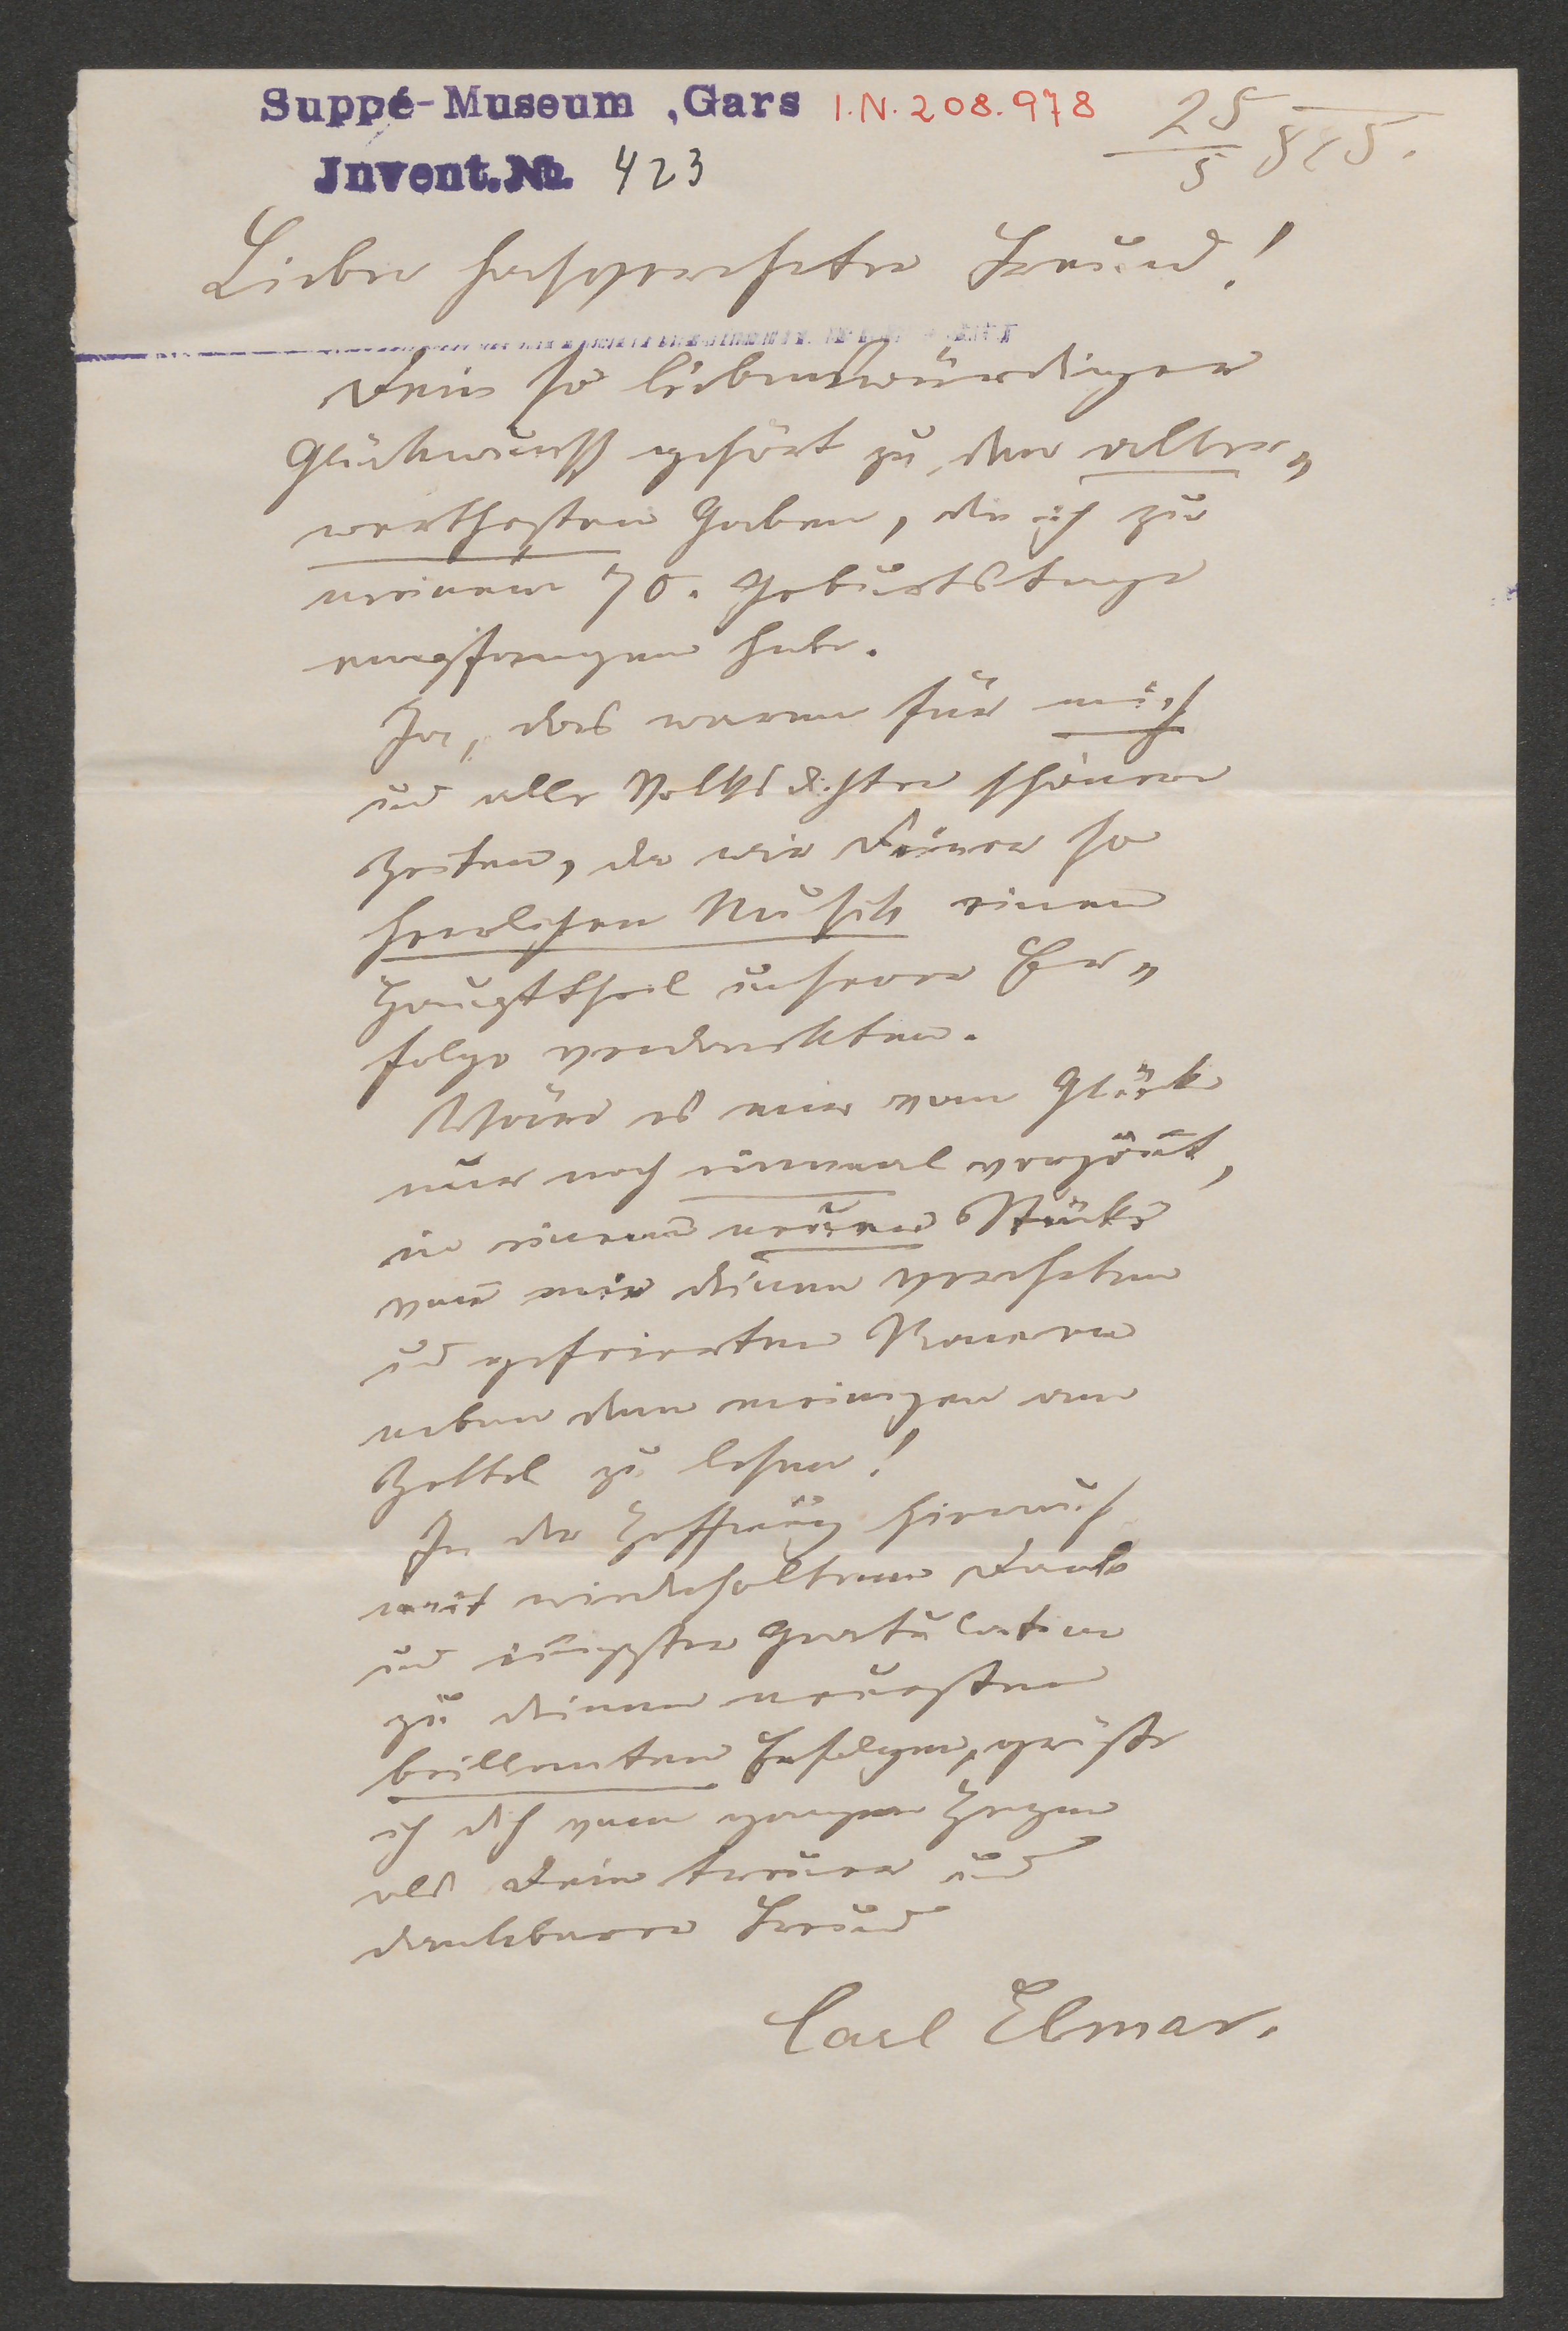 Suppé-Museum, Gars I.N. 208.978
Invent.No. 423
25/5 885.
Lieber hochverehrter Freund!
Dein so liebenswürdiger
Glückwunsch gehört zu den aller„
werthesten Gaben, die ich zu
meinem 70. Geburtstage
empfangen habe.
Ja, das waren für mich
und alle Volksdichter schönere
Zeiten, da wir Deiner so
herrlichen Musik einen
Haupttheil unserer Er„
folge verdankten.
Wäre es mir vom Glück
nur noch einmal vergönnt,
in einem neuen Stücke
von mir deinen verehrten
und gefeierten Namen
neben dem meinigen am
Zettel zu lesen!
In der Hoffnung hierauf
mit wiederholtem Danke
und innigster Gratulation
zu deinen neuesten
brillanten Erfolgen, grüße
ich dich vom ganzen Herzen
als Dein treuer und
dankbarer Freund
Carl Elmar.